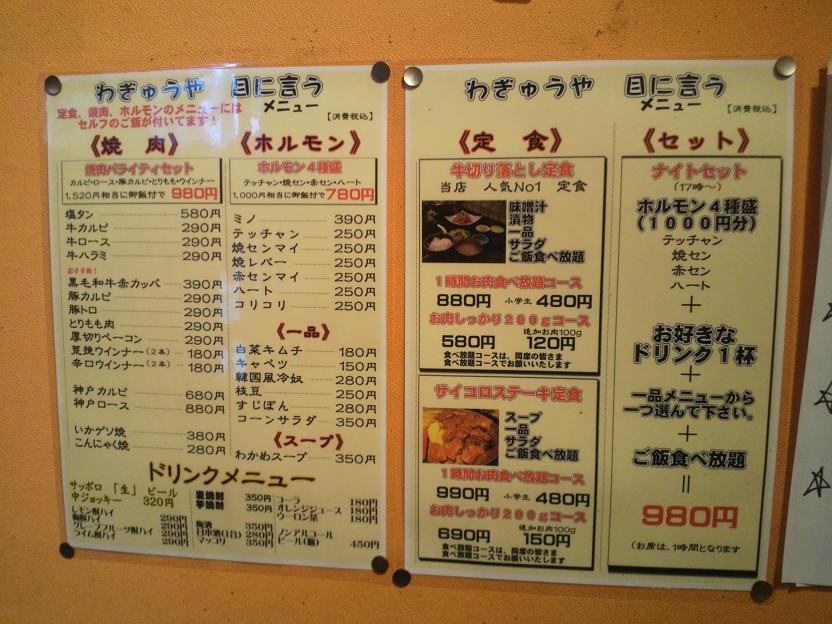 わぎゅうや 目に言う
メニュー
定食、焼肉、ホルモンのメニューには
セルフのご飯が付いてます!
【消費税込】
《焼 肉》
焼肉バライティセット
カルビ・ロース・豚カルビ・とりもも・ウインナー
1,520円相当に御飯付で 980円
塩タン 580円
牛カルビ 290円
牛ロース 290円
牛ハラミ 290円
おすすめ!
黒毛和牛赤カッパ 390円
豚カルビ 290円
豚トロ 290円
とりもも肉 290円
厚切りベーコン 290円
荒挽ウインナー(2本) 180円
辛口ウインナー(2本) 180円
神戸カルビ 680円
神戸ロース 880円
いかゲソ焼 380円
こんにゃく焼 280円
《ホルモン》
ホルモン4種盛
テッチャン・焼セン・赤セン・ハート
1,000円相当に御飯付で780円
ミノ 390円
テッチャン 250円
焼センマイ 250円
焼レバー 250円
赤センマイ 250円
ハート 250円
コリコリ 250円
《一品》
白菜キムチ 180円
キャベツ 150円
韓国風冷奴 280円
枝豆 250円
すじぽん 280円
コーンサラダ 350円
《スープ》
わかめスープ 350円
ドリンクメニュー
サッポロ「生」ビール
中ジョッキー 320円
レモン酎ハイ 290円
梅酎ハイ 290円
グレープフルーツ酎ハイ 290円
ライム酎ハイ 290円
麦焼酎 350円
芋焼酎 350円
梅酒 350円
日本酒(1合) 280円
マッコリ 350円
コーラ 180円
オレンジジュース 180円
ウーロン茶 180円
ノンアルコール
ビール(瓶) 450円
わぎゅうや 目に言う
メニュー
【消費税込】
《定 食》
牛切り落とし定食
当店 人気No1 定食
味噌汁
漬物
一品
サラダ
ご飯食べ放題
1時間お肉食べ放題コース
880円 小学生 480円
お肉しっかり200gコース
追加お肉100g
580円 120円
食べ放題コースは、同席の皆さま
食べ放題コースでお願いいたします
サイコロステーキ定食
スープ
一品
サラダ
ご飯食べ放題
1時間お肉食べ放題コース
990円 小学生 480円
お肉しっかり200gコース
追加お肉100g
690円 150円
食べ放題コースは、同席の皆さま
食べ放題コースでお願いいたします
《セット》
ナイトセット
(17時~)
ホルモン4種盛
(1000円分)
テッチャン
焼セン
赤セン
ハート
+
お好きな
ドリンク1杯
+
一品メニューから
一つ選んで下さい。
+
ご飯食べ放題
=
980円
(お席は、1時間となります